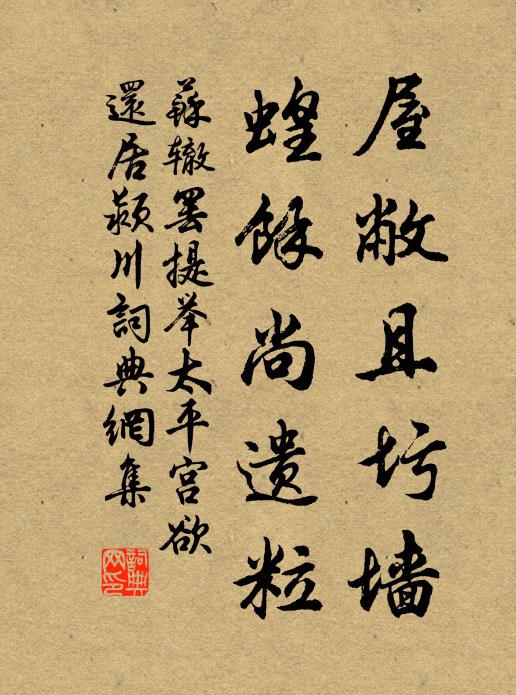 屋敝且圬墙
蝗馀尚遗粒
蘇辙罢提举太平宫欲
還居颍川詞典網集